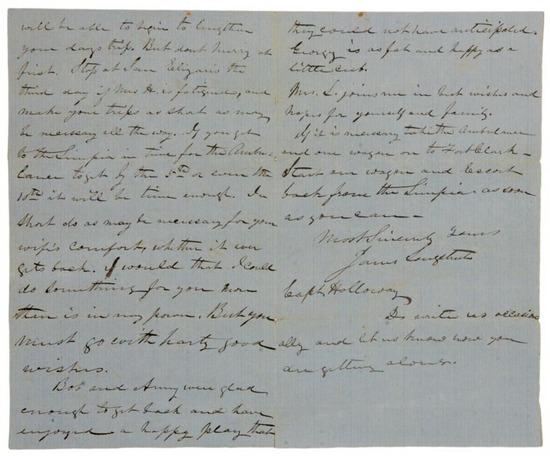 will be able to begin to lengthen
your days trip. But dont hurry at
first. Stop at San Elizario the
third day if Mrs H. is fatigued, and
make your trips as short as may
be necessary all the way. If you get
to the Limpia in time for the Ambu-
lance to get by the 5th or even the
10th it will be time enough. In
short do as may be necessary for your
wife's comfort, whether it ever
gets back. I would that I could
do something for you more
then is in my power. But you
must go with harty good
wishes.
Bob and Amy were glad
enough to get back and have
enjoyed a happy play that
they could not have anticipated.
Georgy is as fat and happy as a
little cub.
Mrs. L. joins me in best wishes and
hopes for yourself and family.
If it is necessary to the Ambulance
and one wagon on to Fort Clark -
Start one wagon and Escort
back from the Limpia as soon
as you can -
Most Sincerely Yours
James Longstreet
Capt. Holloway
Do write us occasion
ally and let us know how you
are getting along.